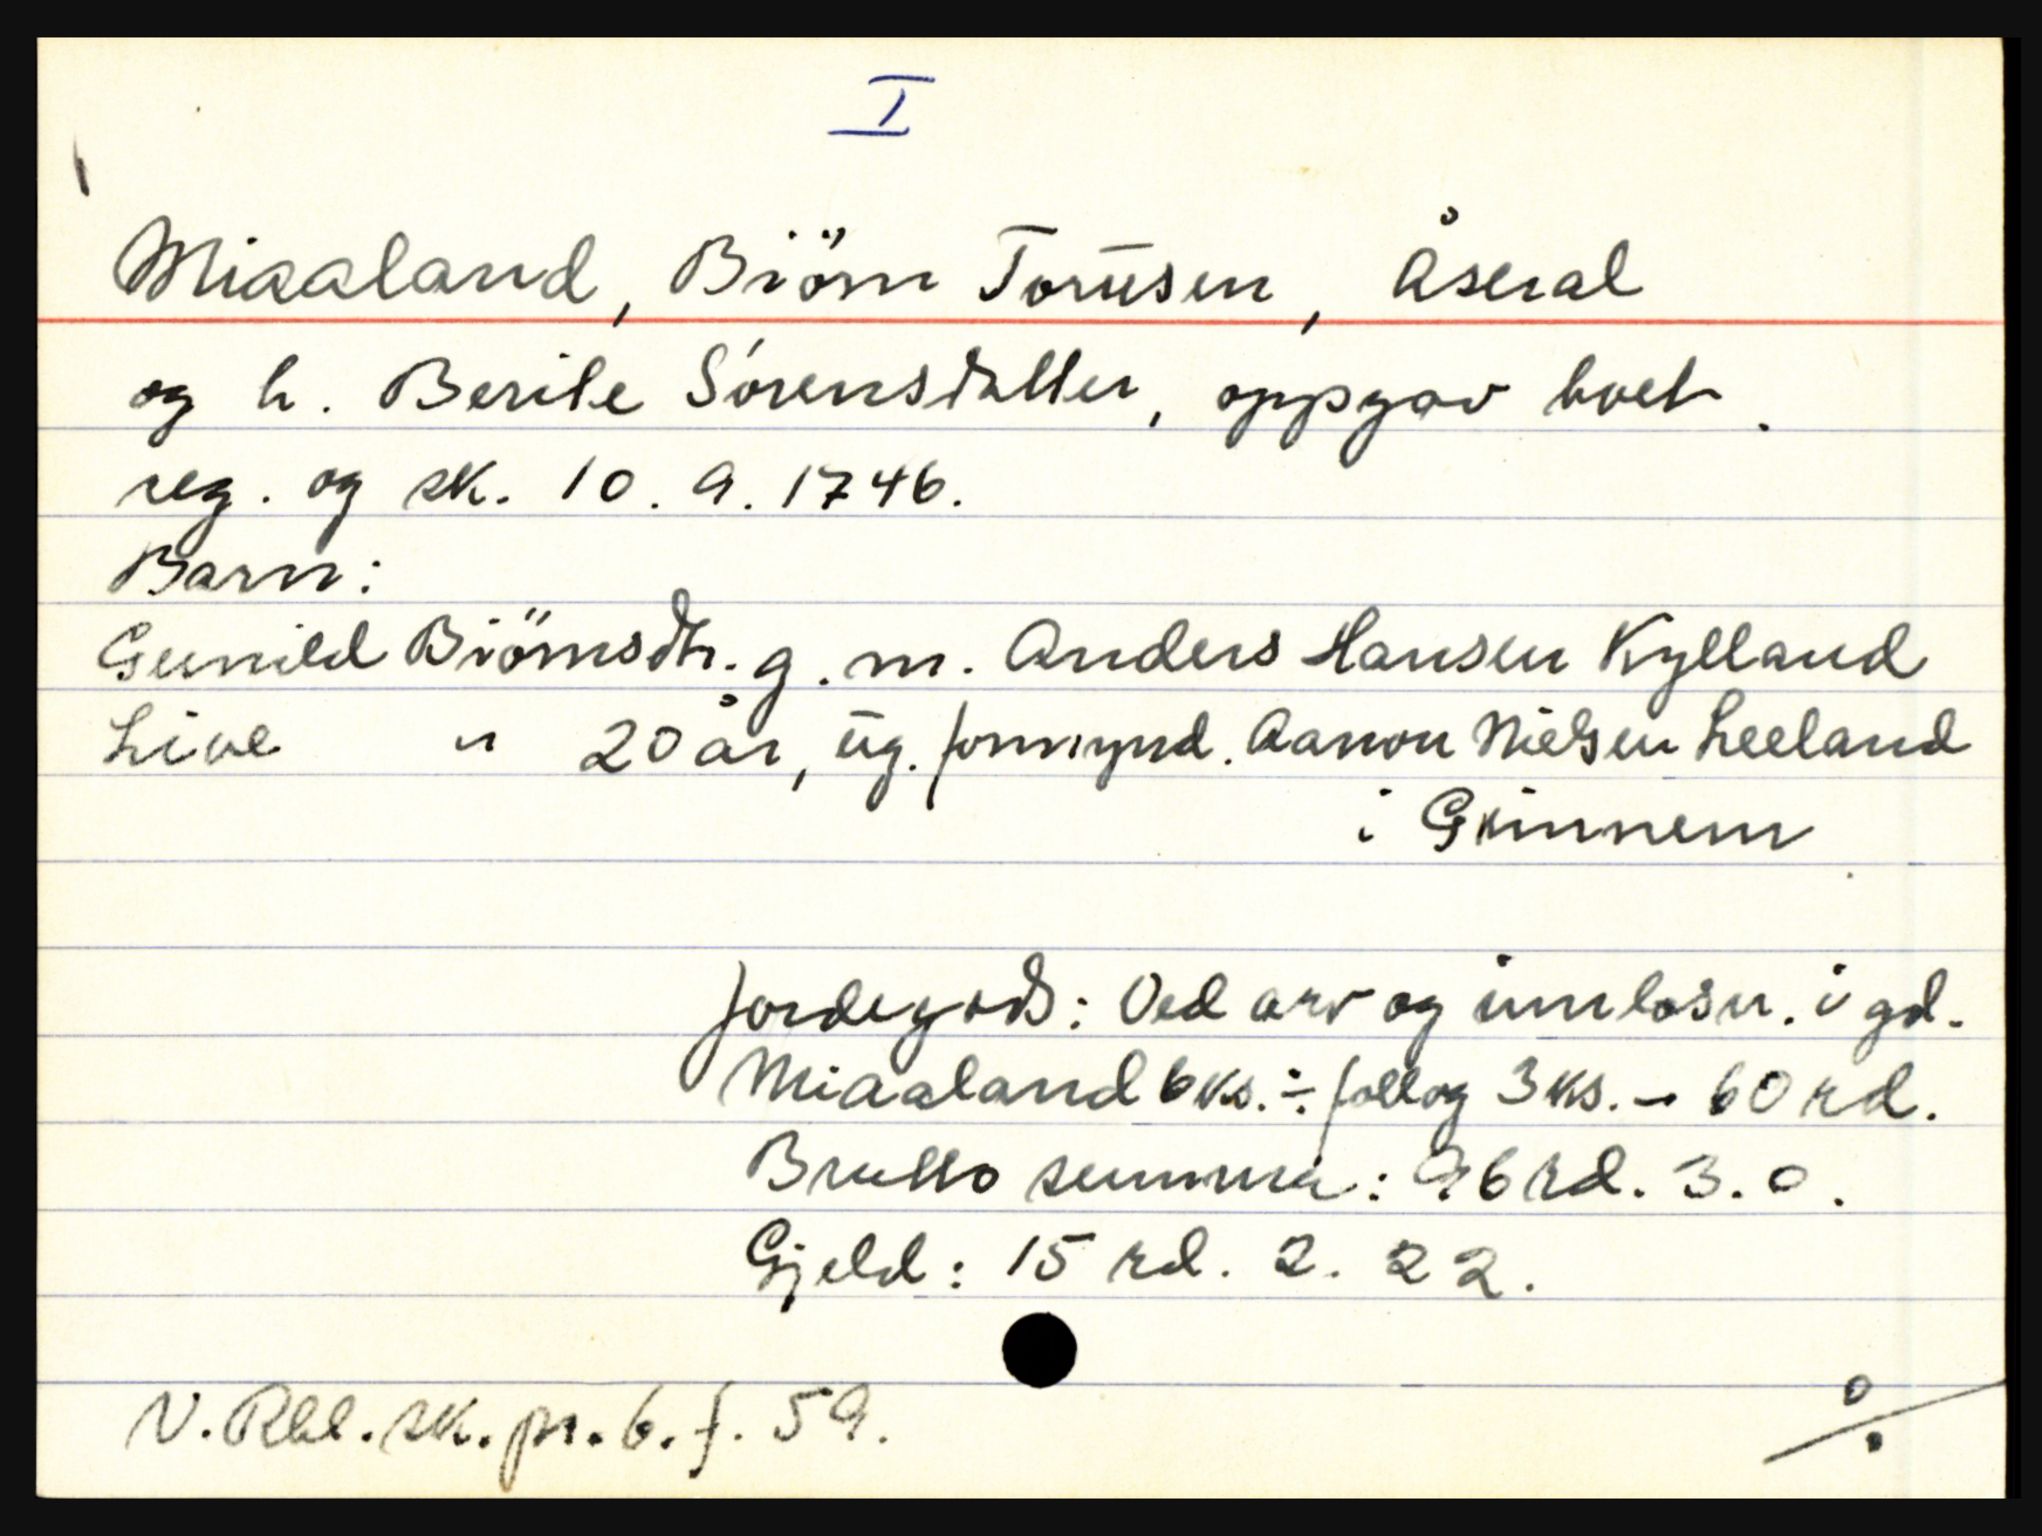 I
Miaaland, Biörn Torūsen, Åseral
og h. Berite Sørensdatter, oppgav boet.
reg. og sk. 10. 9. 1746.
Barn:
Gunild Biörnsdtr. g. m. Anders Hansen Kylland
Live " 20 år, ūg. formynd. Aanon Nielsen Leeland
i Grinnem
Jordegods: Ved arv og innløsn. i gd.
Miaaland 6 ks. ÷ follog 3 ks. - 60 rd.
Brutto summa: 96 rd. 3. 0.
Gjeld: 15 rd. 2. 22.
N. Rbl. sk. pr. 6. f. 59.